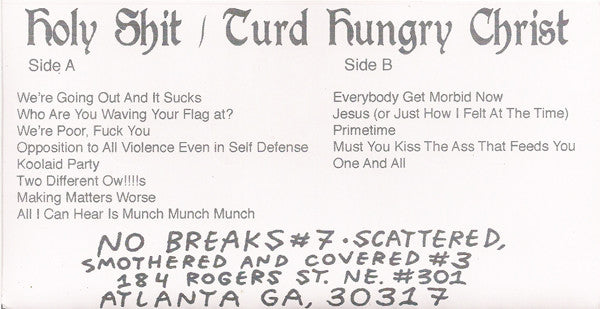 Holy Shit / Turd Hungry Christ
Side A
We're Going Out And It Sucks
Who Are You Waving Your Flag at?
We're Poor, Fuck You
Opposition to All Violence Even in Self Defense
Koolaid Party
Two Different Ow!!!!s
Making Matters Worse
All I Can Hear Is Munch Munch Munch
Side B
Everybody Get Morbid Now
Jesus (or Just How I Felt At The Time)
Primetime
Must You Kiss The Ass That Feeds You
One And All
NO BREAKS #7 · SCATTERED,
SMOTHERED AND COVERED #3
184 ROGERS ST. NE. #301
ATLANTA GA, 30317